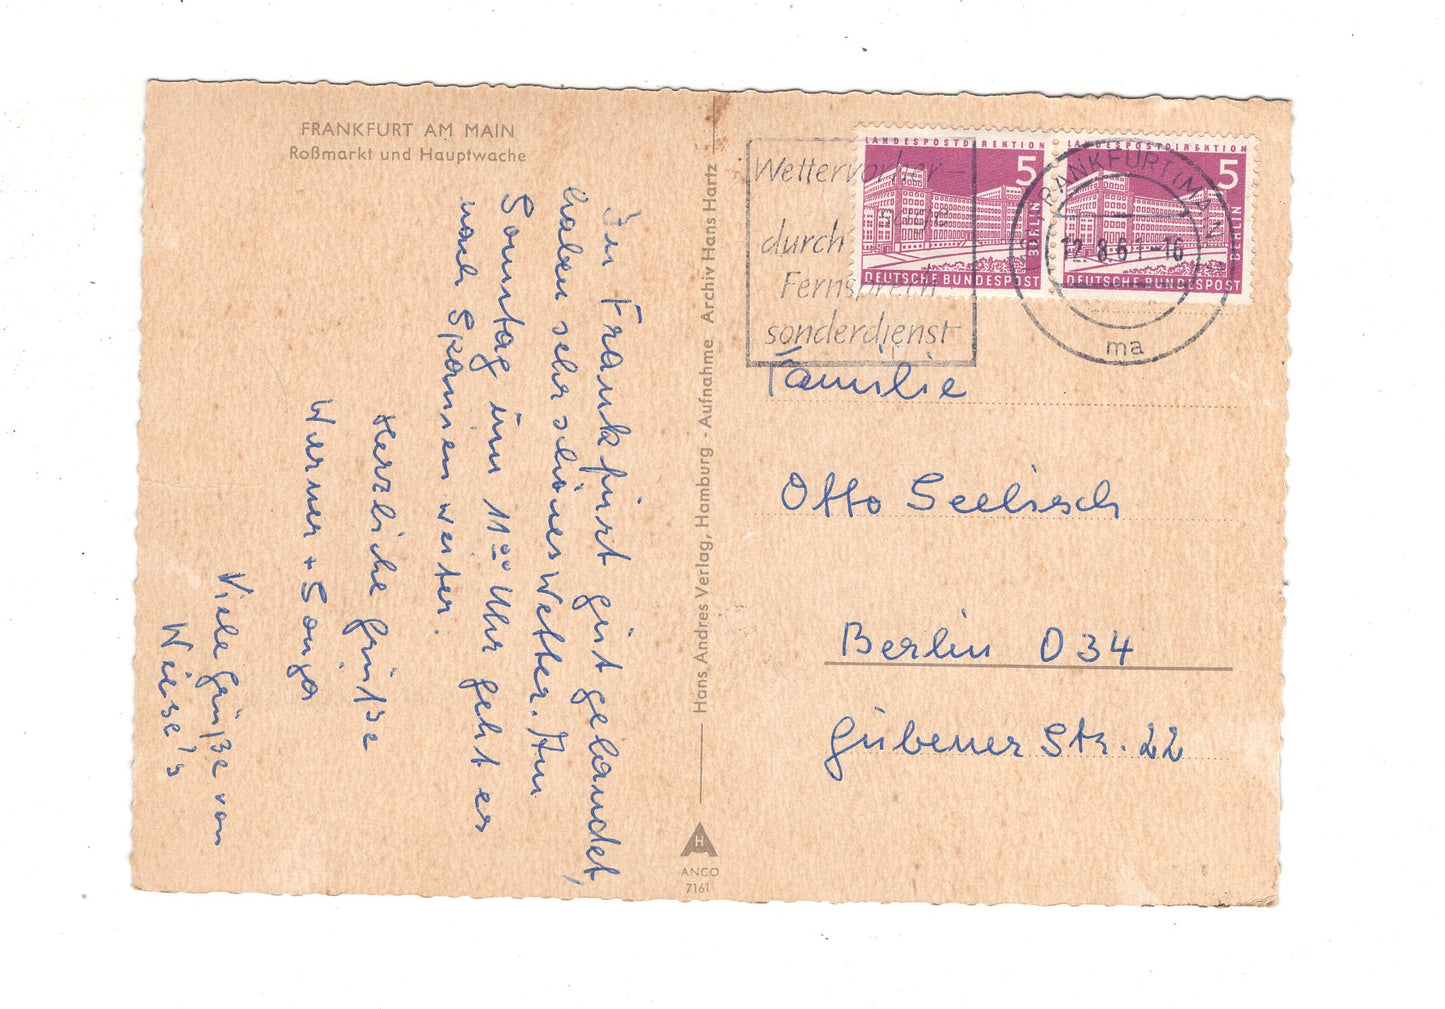 FRANKFURT AM MAIN
Roßmarkt und Hauptwache
In Frankfurt gut gelandet,
haben sehr schönes Wetter. Am
Sonntag um 11⁰⁰ Uhr geht es
nach Spanien weiter.
Herzliche Grüße
Werner + Sonja
Viele Grüße von
Wiese's
Hans Andres Verlag, Hamburg - Aufnahme Archiv Hans Hartz
H
ANCO
7161
Wettervorher-
sage
durch
Fernsprech
sonderdienst
LANDESPOSTDIREKTION
5
BERLIN
DEUTSCHE BUNDESPOST
LANDESPOSTDIREKTION
5
BERLIN
DEUTSCHE BUNDESPOST
FRANKFURT (MAIN)
12.8.61-16
ma
Familie
Otto Seelisch
Berlin O34
Gubener Str. 22